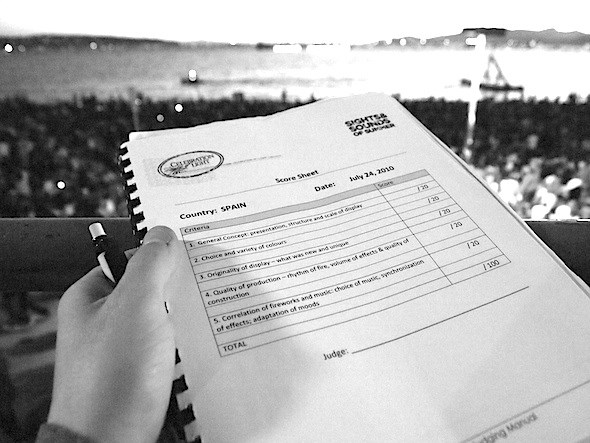 SIGHTS&
SOUNDS
OF SUMMER
CELEBRATION
LIGHT
Score Sheet
Country: SPAIN
Date: July 24, 2010
Criteria
Score
1. General Concept: presentation, structure and scale of display
/ 20
2. Choice and variety of colours
/ 20
3. Originality of display – what was new and unique
/ 20
4. Quality of production – rhythm of fire, volume of effects & quality of
construction
/ 20
5. Correlation of fireworks and music: choice of music, synchronization
of effects; adaptation of moods
/ 20
TOTAL
/ 100
Judge:
Judging Manual